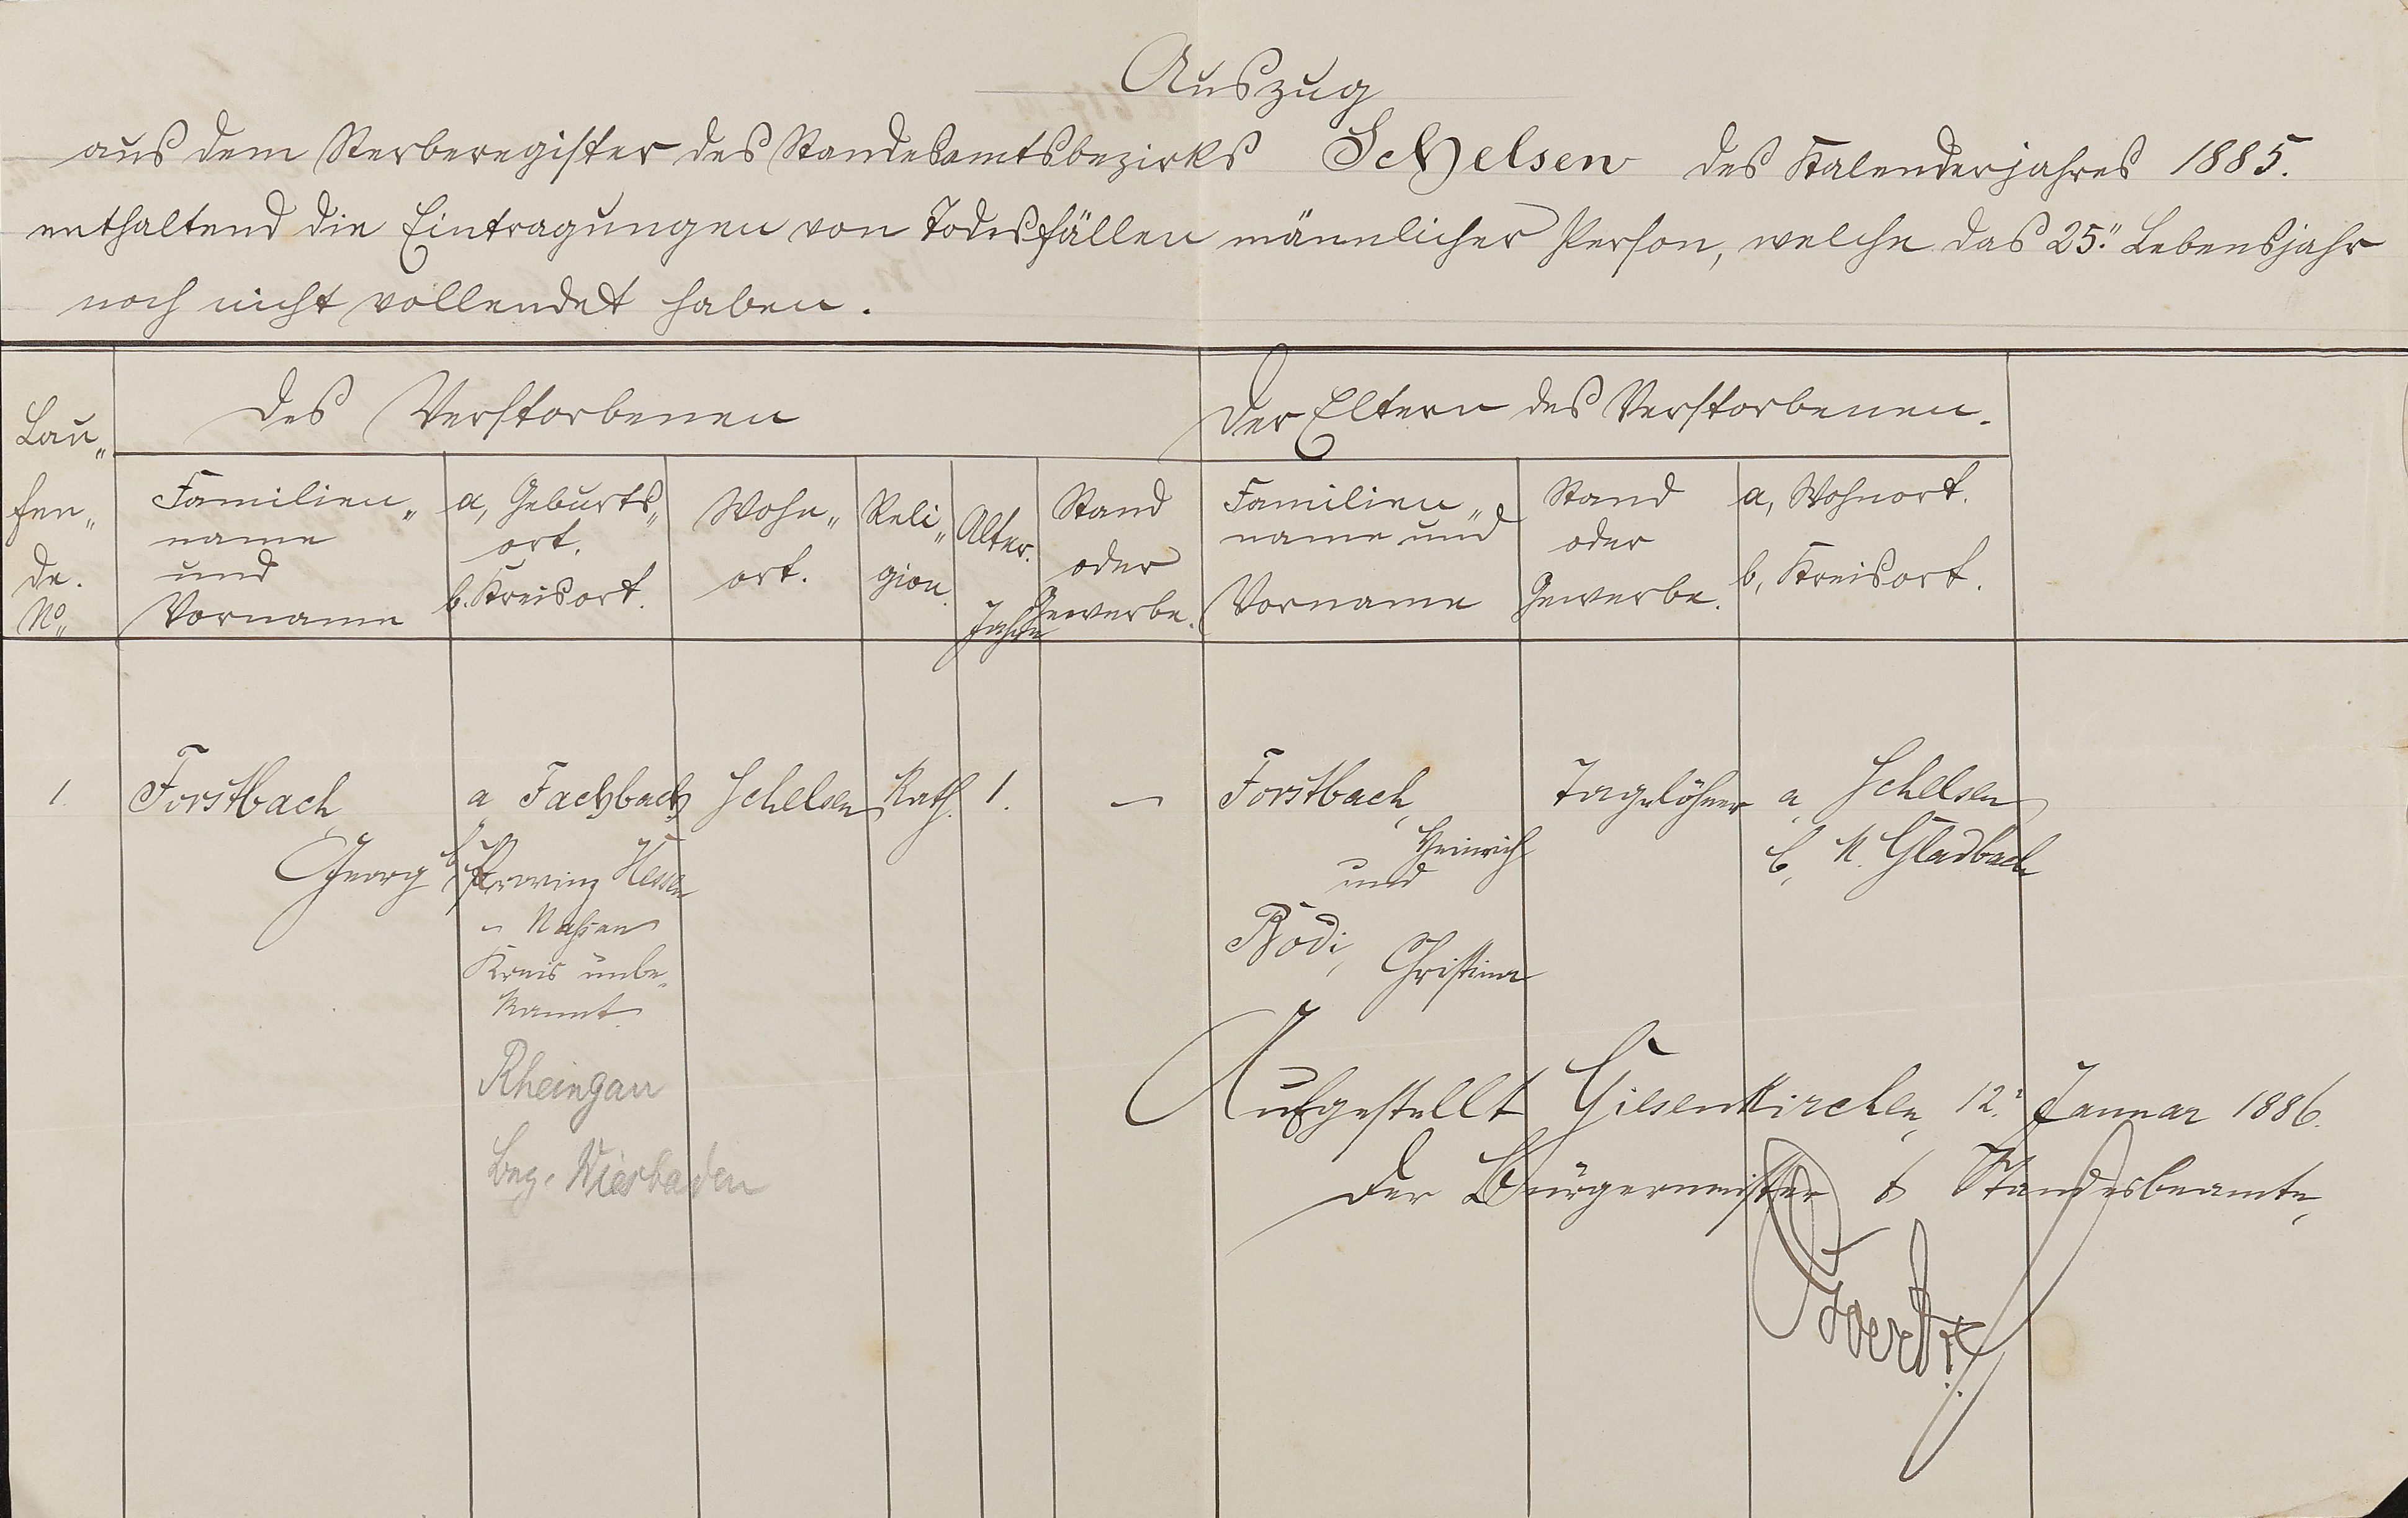 Auszug
aus dem Sterberegister des Standesamtsbezirks Schelsen des Kalenderjahres 1885.
enthaltend die Eintragungen von Todesfällen männlicher Person, welche das 25." Lebensjahr
noch nicht vollendet haben.
Lau„
fen„
de.
No„
des Verstorbenen
der Eltern des Verstorbenen.
Familien„
name
und
Vorname
a, Geburts„
ort.
b. Kreisort.
Wohn„
ort.
Reli„
gion.
Alter.
Jahre
Stand
oder
Gewerbe.
Familien„
name und
Vorname
Stand
oder
Gewerbe.
a, Wohnort.
b, Kreisort.
1.
Forstbach,
Georg
a, Fachbach
b, Provinz Hessen
- Nassau
Kreis unbe„
kannt.
Rheingau
Bez. Wiesbaden
Schelsen
Kath.
1.
—
Forstbach,
Heinrich
und
Bödi, Christina
Tagelöhner
a, Schelsen
b, M. Gladbach
Aufgestellt Giesenkirchen, 12." Januar 1886.
Der Bürgermeister & Standesbeamte,